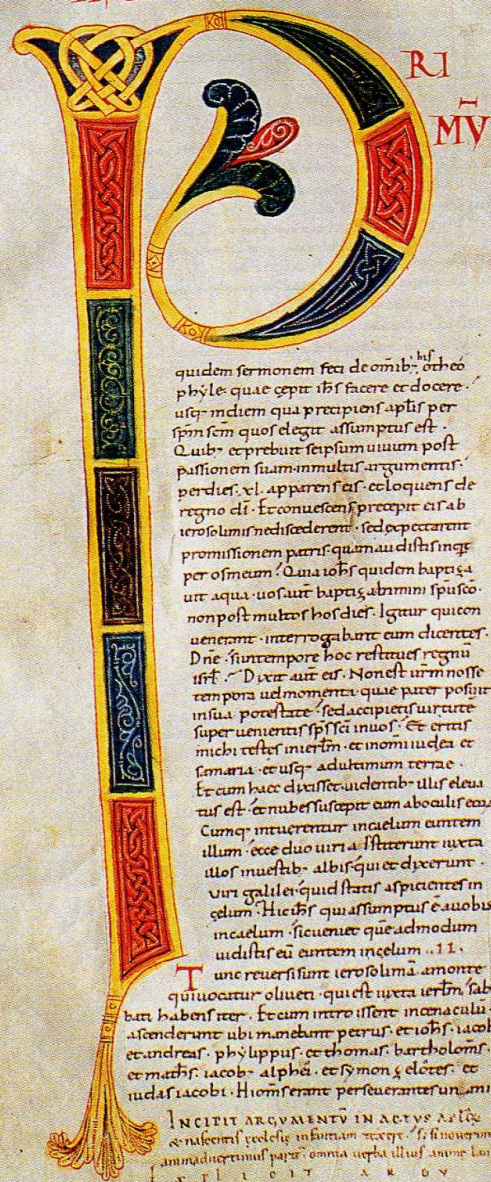 P
RI
MV̄
quidem sermonem feci de omĩb; his o theo
phyle. quae cepit ihs facere et docere.
usq; in diem qua precipiens aplis per
spm scm quos elegit assumptus est.
Quib; et prebuit seipsum uiuum post
passionem suam in multis argumentis.
per dies .xl. apparens eis. et loquens de
regno di. Et conuescens precepit eis ab
ierosolimis ne discederent. sed expectarent
promissionem patris quam audistis inqt
per os meum. Quia iohs quidem baptiza
uit aqua. uos aut baptizabimini spu sco
non post multos hos dies. Igitur qui con
uenerant. interrogabant eum dicentes.
Dne. si in tempore hoc restitues regnū
isrl. Dixit aut eis. Non est urm nosse
tempora uel momenta. quae pater posuit
in sua potestate. sed accipietis uirtutē
super uenientis sps sci in uos. Et eritis
michi testes in ierlm. et in omi iudea et
samaria. et usq; ad ultimum terrae.
Et cum haec dixisset. uidentib; illis eleua
tus est. et nubes suscepit eum ab oculis eoꝝ
Cumq; intuerentur in caelum euntem
illum. ecce duo uiri astiterunt iuxta
illos in uestib; albis. qui et dyxerunt.
uiri galilei. quid statis aspicientes in
celum. Hic ihs qui assumptus ē a uobis
in caelum. sic ueniet queadmodum
uidistis eū euntem in celum. .11.
Tunc reuersi sunt ierosolimā. a monte
qui uocatur oliueti. qui est iuxta ierlm. sab
bati habens iter. Et cum introissent in cenaculū.
ascenderunt ubi manebant petrus. et iohs. iacob
et andreas. phylippus. et thomas. bartholoms.
et maths. iacob; alphei. et symon zelotes. et
iudas iacobi. Hi oms erant perseuerantes un ani
INCIPIT ARGVMENTŪ IN ACTVS
nascentis infantiam texere. si nouerim
animaduertimus omnia uerba illius anime
EXPLICIT ARGV